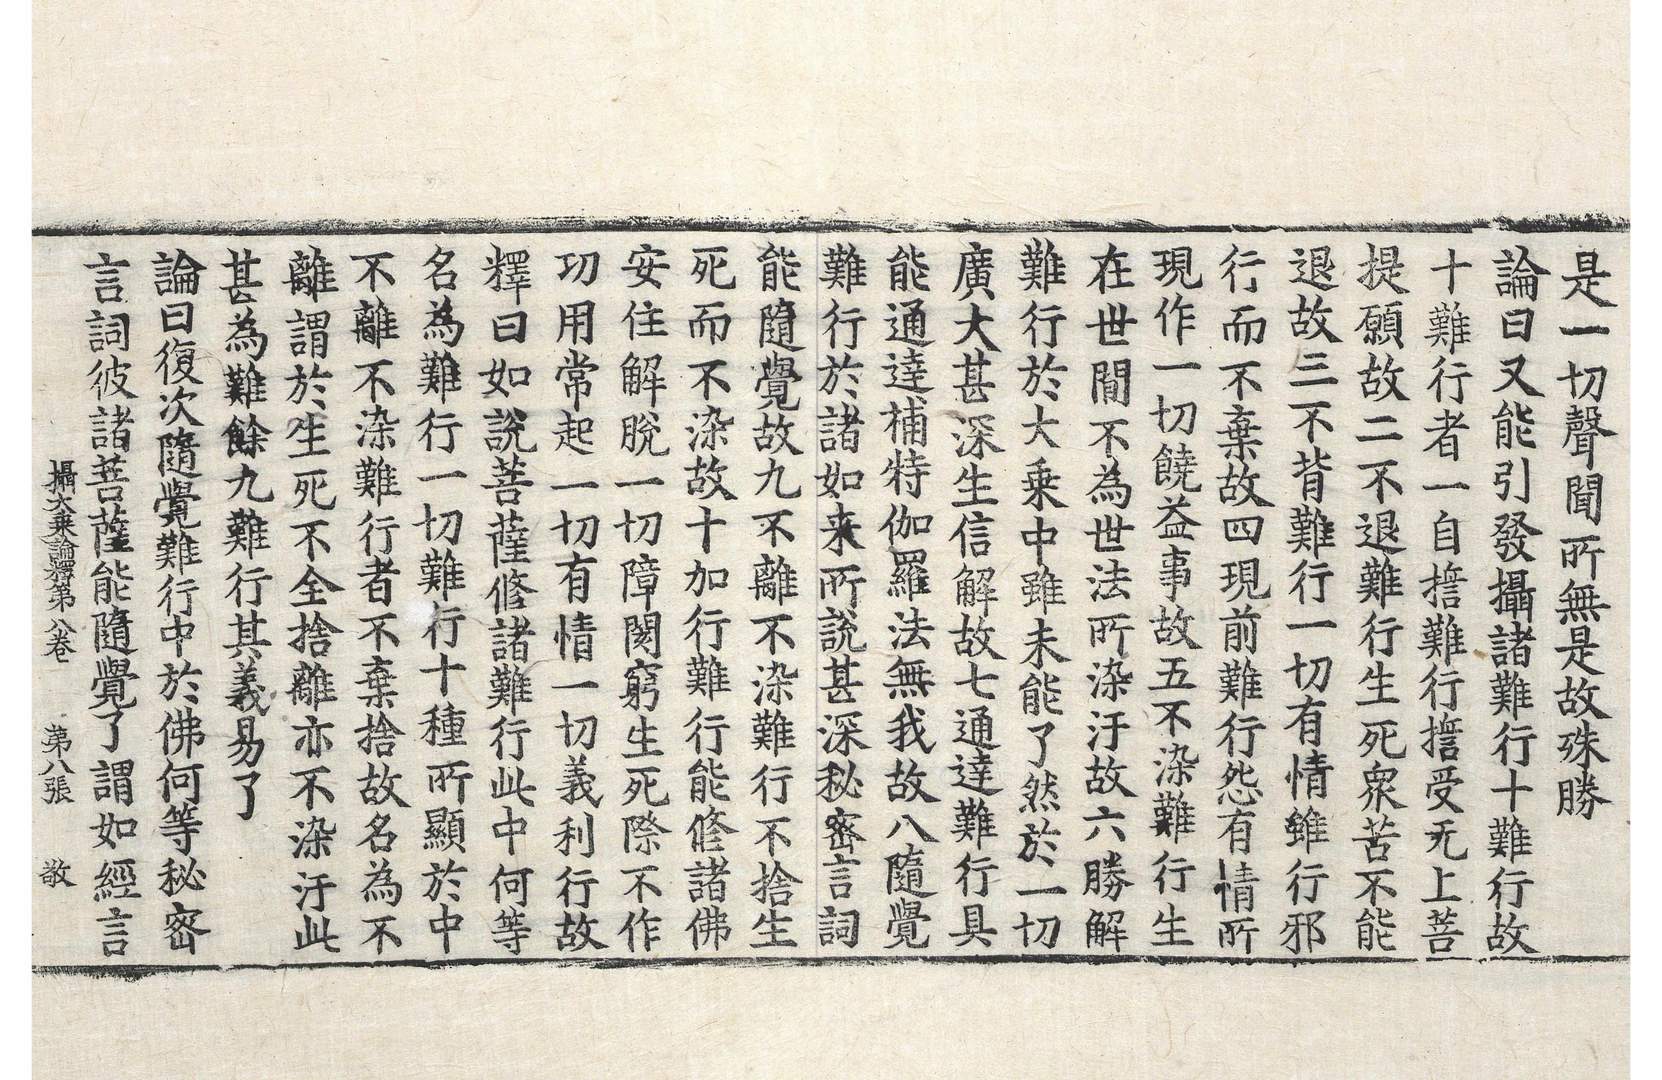 是一切聲聞所無是故殊勝
論曰又能引發攝諸難行十難行故
十難行者一自擔難行擔受无上菩
提願故二不退難行生死衆苦不能
退故三不背難行一切有情雖行邪
行而不棄故四現前難行怨有情所
現作一切饒益事故五不染難行生
在世間不為世法所染汙故六勝解
難行於大乗中雖未能了然於一切
廣大甚深生信解故七通達難行具
能通達補特伽羅法無我故八隨覺
難行於諸如来所說甚深秘密言詞
能隨覺故九不離不染難行不捨生
死而不染故十加行難行能修諸佛
安住解脫一切障閡窮生死際不作
功用常起一切有情一切義利行故
釋曰如說菩薩修諸難行此中何等
名為難行一切難行十種所顯於中
不離不染難行者不棄捨故名為不
離謂於生死不全捨離亦不染汙此
甚為難餘九難行其義易了
論曰復次隨覺難行中於佛何等秘密
言詞彼諸菩薩能隨覺了謂如經言
攝大乗論釋第八卷 第八張 敬